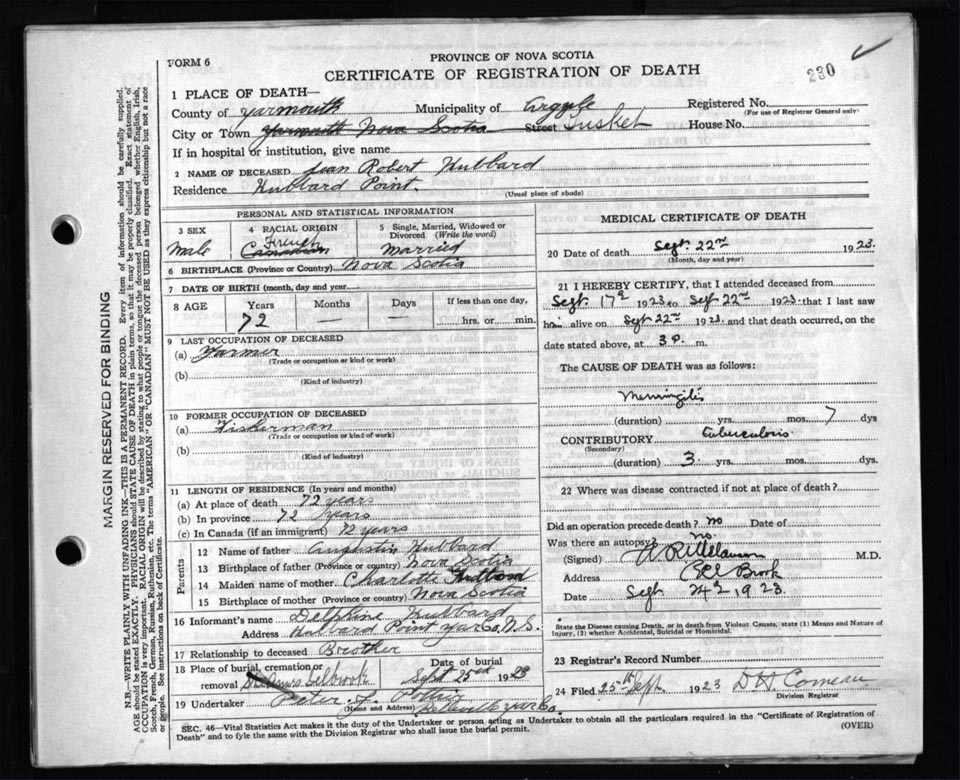 FORM 6
PROVINCE OF NOVA SCOTIA
CERTIFICATE OF REGISTRATION OF DEATH
230
1 PLACE OF DEATH—
County of Yarmouth Municipality of Argyle Registered No.
(For use of Registrar General only)
City or Town Yarmouth Nova Scotia Street Tusket House No.
If in hospital or institution, give name
2 NAME OF DECEASED Jean Robert Hubbard
Residence Hubbard Point.
(Usual place of abode)
MARGIN RESERVED FOR BINDING
N.B.—WRITE PLAINLY WITH UNFADING INK—THIS IS A PERMANENT RECORD. Every item of information should be carefully supplied.
AGE should be stated EXACTLY. PHYSICIANS should STATE CAUSE OF DEATH in plain terms, so that it may be properly classified. Exact statement of
OCCUPATION is very important. RACIAL ORIGIN will be described by stating to what people or tongue the deceased person belonged whether English, Irish,
Scotch, French, German, Russian, Ruthenian, etc. The terms "AMERICAN" OR "CANADIAN" MUST NOT BE USED as they express citizenship but not a race
or people. See instructions on back of Certificate.
PERSONAL AND STATISTICAL INFORMATION
3 SEX
Male
4 RACIAL ORIGIN
French
Canadian
5 Single, Married, Widowed or
Divorced (Write the word)
Married
6 BIRTHPLACE (Province or Country) Nova Scotia
7 DATE OF BIRTH (month, day and year)
8 AGE Years Months Days If less than one day,
72 — — hrs. or min.
9 LAST OCCUPATION OF DECEASED
(a) Farmer
(Trade or occupation or kind of work)
(b)
(Kind of industry)
10 FORMER OCCUPATION OF DECEASED
(a) Fisherman
(Trade or occupation or kind of work)
(b)
(Kind of industry)
11 LENGTH OF RESIDENCE (In years and months)
(a) At place of death 72 years
(b) In province 72 years
(c) In Canada (if an immigrant) 72 years
Parents
12 Name of father Augustin Hubbard
13 Birthplace of father (Province or country) Nova Scotia
14 Maiden name of mother Charlotte
15 Birthplace of mother (Province or country) Nova Scotia
16 Informant's name Delphine Hubbard
Address Hubbard Point Yar Co. N.S.
17 Relationship to deceased Brother
18 Place of burial, cremation or
removal
Date of burial
Sept 25th 1923
19 Undertaker Peter J. Pottier
(Name and Address) Belleville Yar Co.
MEDICAL CERTIFICATE OF DEATH
20 Date of death Sept. 22nd 1923.
(Month, day and year)
21 I HEREBY CERTIFY, that I attended deceased from
Sept. 17th 1923 to Sept 22nd 1923 that I last saw
him alive on Sept 22nd 1923. and that death occurred, on the
date stated above, at 3 P. m.
The CAUSE OF DEATH was as follows:
Meningitis
(duration) yrs. mos. 7 dys
CONTRIBUTORY Tuberculosis
(Secondary)
(duration) 3 yrs. mos. dys.
22 Where was disease contracted if not at place of death?
Did an operation precede death? no Date of
Was there an autopsy? no.
(Signed) M.D.
Address Eel Brook
Date Sept 24th 1923.
State the Disease causing Death, or in death from Violent Causes, state (1) Means and Nature of
Injury, (2) whether Accidental, Suicidal or Homicidal.
23 Registrar's Record Number
24 Filed 25th Sept 1923 D H Comeau
Division Registrar
SEC. 46—Vital Statistics Act makes it the duty of the Undertaker or person acting as Undertaker to obtain all the particulars required in the "Certificate of Registration of
Death" and to fyle the same with the Division Registrar who shall issue the burial permit.
(OVER)